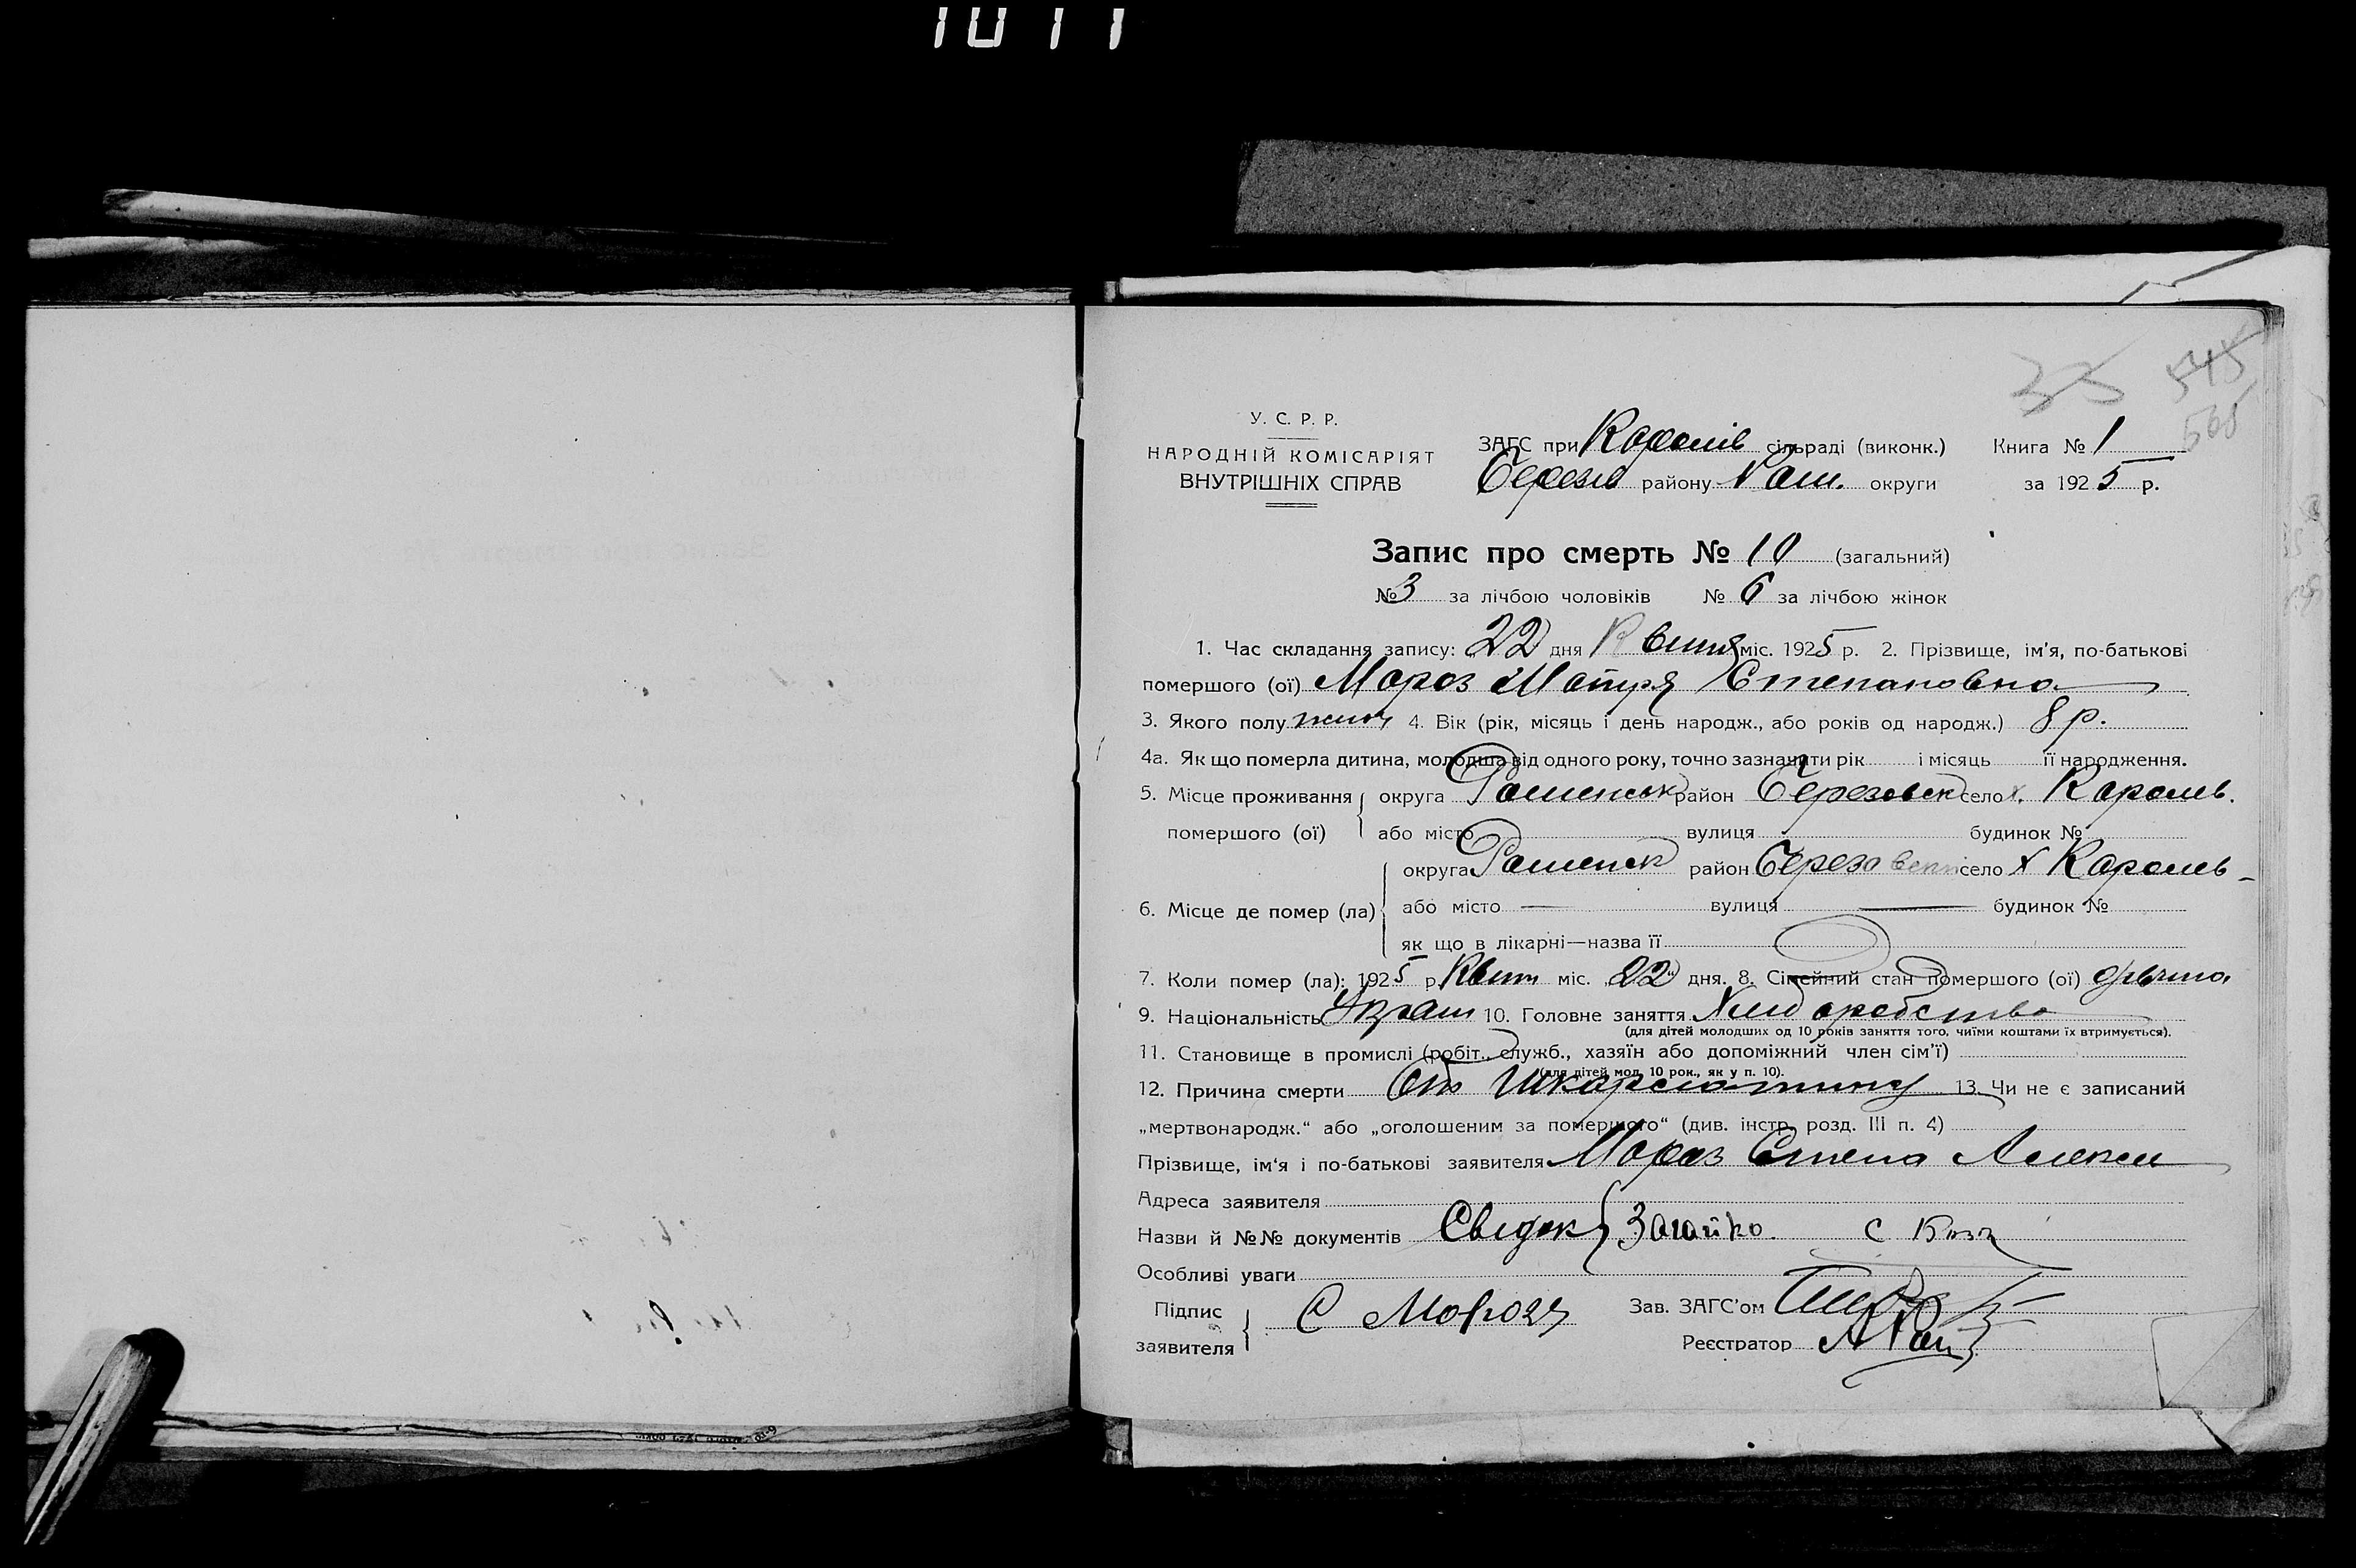 1011
35 545
565
У. С. Р. Р.
НАРОДНІЙ КОМІСАРІЯТ
ВНУТРІШНІХ СПРАВ
ЗАГС при Королів сільраді (виконк.) Книга № 1
Березів району Ром. округи за 1925 р.
Запис про смерть № 10 (загальний)
№ 3 за лічбою чоловіків № 6 за лічбою жінок
1. Час складання запису: „22" дня Квітня міс. 1925 р. 2. Прізвище, ім'я, по-батькові
помершого (ої) Мороз Мотря Степановна
3. Якого полу жіноч 4. Вік (рік, місяць і день народж., або років од народж.) 8 р.
4а. Як що померла дитина, молодша від одного року, точно зазначати рік і місяць її народження.
5. Місце проживання округа Роменськ район Березовск село х. Королів.
помершого (ої) або місто вулиця будинок №
округа Роменск район Березовськ село х Королів
6. Місце де помер (ла) або місто — вулиця — будинок №
як що в лікарні—назва її
7. Коли помер (ла): 1925 р. Квітн міс. „22" дня. 8. Сімейний стан помершого (ої) дівчина
9. Національність Україн 10. Головне заняття Хліборобство
(для дітей молодших од 10 років заняття того, чиїми коштами їх втримується).
11. Становище в промислі (робіт., служб., хазяїн або допоміжний член сім'ї)
(для дітей мол. 10 рок., як у п. 10).
12. Причина смерти От шкарлатини 13. Чи не є записаний
„мертвонародж." або „оголошеним за помершого" (див. інстр. розд. III п. 4)
Прізвище, ім'я і по-батькові заявителя Мороз Степа Алексі
Адреса заявителя
Назви й №№ документів Свідок Загайко. С
Особливі уваги
Підпис
заявителя С Мороз Зав. ЗАГС'ом
Реєстратор